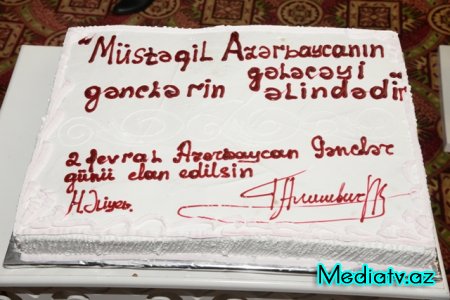 "Müstəqil Azərbaycanın
gənclərin gələcəyi
əlindədir"
2 fevral Azərbaycan Gənclər
günü elan edilsin
H.Əliyev.
Mediatv.az